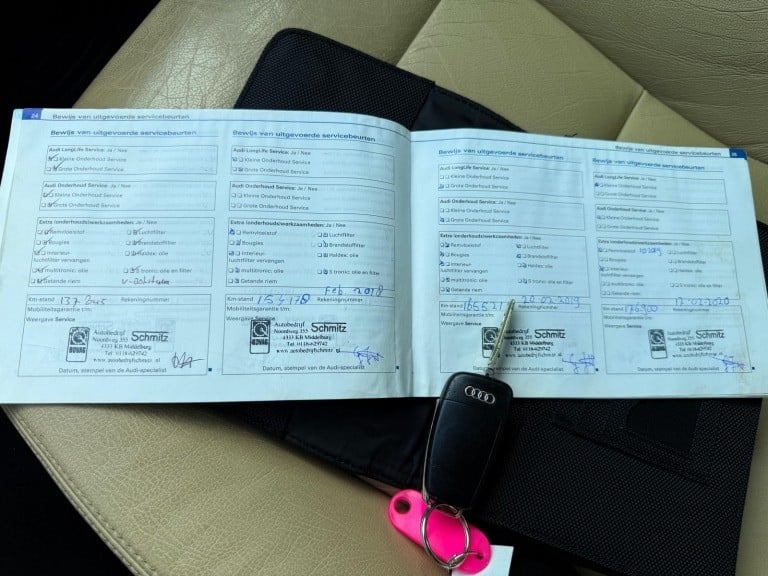 24
Bewijs van uitgevoerde servicebeurten
Bewijs van uitgevoerde servicebeurten
Audi LongLife Service: Ja / Nee
Kleine Onderhoud Service
Grote Onderhoud Service
Audi Onderhoud Service: Ja / Nee
Kleine Onderhoud Service
Grote Onderhoud Service
Extra (onderhouds)werkzaamheden: Ja / Nee
Remvloeistof Luchtfilter
Bougies Brandstoffilter
Interieur- Haldex: olie
luchtfilter vervangen
multitronic: olie S tronic: olie en filter
Getande riem
Km-stand Rekeningnummer
Mobiliteitsgarantie t/m:
Weergave Service
BOVAG
Autobedrijf Schmitz
Noordweg 355
4333 KB Middelburg
Tel. 0118-629742
www.autobedrijfschmitz.nl
Datum, stempel van de Audi-specialist
Bewijs van uitgevoerde servicebeurten
Audi LongLife Service: Ja / Nee
Kleine Onderhoud Service
Grote Onderhoud Service
Audi Onderhoud Service: Ja / Nee
Kleine Onderhoud Service
Grote Onderhoud Service
Extra (onderhouds)werkzaamheden: Ja / Nee
Remvloeistof Luchtfilter
Bougies Brandstoffilter
Interieur- Haldex: olie
luchtfilter vervangen
multitronic: olie S tronic: olie en filter
Getande riem
Feb 2018
Km-stand 154178 Rekeningnummer
Mobiliteitsgarantie t/m:
Weergave Service
BOVAG
Autobedrijf Schmitz
Noordweg 355
4333 KB Middelburg
Tel. 0118-629742
www.autobedrijfschmitz.nl
Datum, stempel van de Audi-specialist
Bewijs van uitgevoerde servicebeurten
Bewijs van uitgevoerde servicebeurten
Audi LongLife Service: Ja / Nee
Kleine Onderhoud Service
Grote Onderhoud Service
Audi Onderhoud Service: Ja / Nee
Kleine Onderhoud Service
Grote Onderhoud Service
Extra (onderhouds)werkzaamheden: Ja / Nee
Remvloeistof Luchtfilter
Bougies Brandstoffilter
Interieur- Haldex: olie
luchtfilter vervangen
multitronic: olie S tronic: olie en filter
Getande riem
20.02.2019
Km-stand Rekeningnummer
Mobiliteitsgarantie t/m:
Weergave Service
Schmitz
Noordweg 355
4333 KB Middelburg
Datum, stempel van de Audi-specialist
Bewijs van uitgevoerde servicebeurten
Audi LongLife Service: Ja / Nee
Kleine Onderhoud Service
Grote Onderhoud Service
Audi Onderhoud Service: Ja / Nee
Kleine Onderhoud Service
Grote Onderhoud Service
Extra (onderhouds)werkzaamheden: Ja / Nee
Remvloeistof Luchtfilter
Bougies Brandstoffilter
Interieur- Haldex: olie
luchtfilter vervangen
multitronic: olie S tronic: olie en filter
Getande riem
Km-stand 176900 Rekeningnummer
Mobiliteitsgarantie t/m:
Weergave Service
Schmitz
Datum, stempel van de Audi-specialist